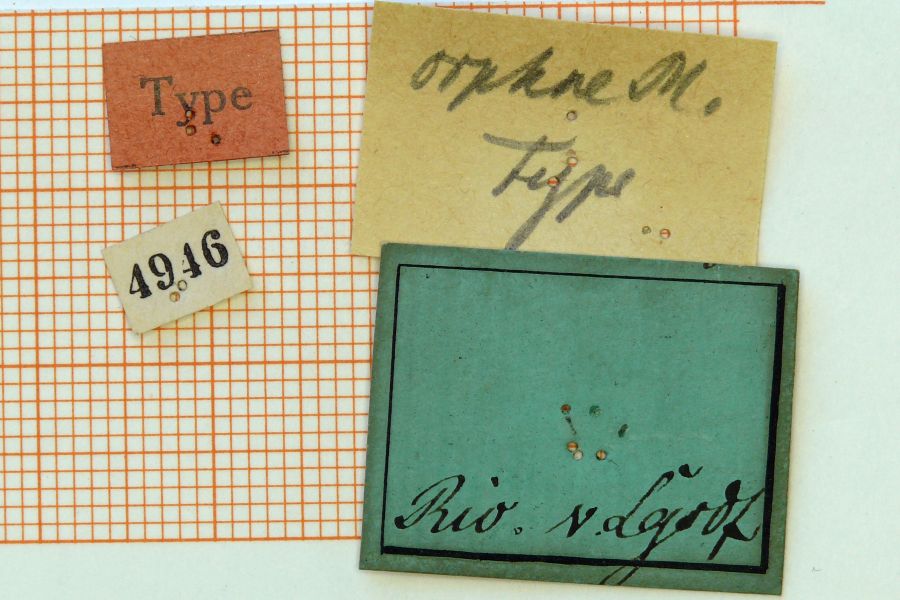 Type
orphne M.
Type
4946
Rio. v. Lgsdf